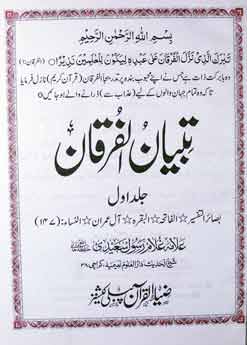 بِسْمِ اللهِ الرَّحْمٰنِ الرَّحِيْمِ
تَبٰرَكَ الَّذِيْ نَزَّلَ الْفُرْقَانَ عَلٰى عَبْدِهٖ لِيَكُوْنَ لِلْعٰلَمِيْنَ نَذِيْرًا (الفرقان:۱)
وہ بابرکت ذات ہے جس نے اپنے محبوب بندہ پر بتدریج الفرقان (قرآن کریم) نازل فرمایا
تاکہ وہ تمام جہان والوں کے لیے (عذاب سے) ڈرانے والے ہو جائیں
تبیان الفرقان
جلد اول
بصائر التفسیر ☆ الفاتحہ ☆ البقرہ ☆ آل عمران ☆ النساء: (۱۴۷)
علامہ غلام رسول سعیدی
شیخ الحدیث دار العلوم نعیمیہ، کراچی ۳۸
ضیاء القرآن پبلی کیشنز